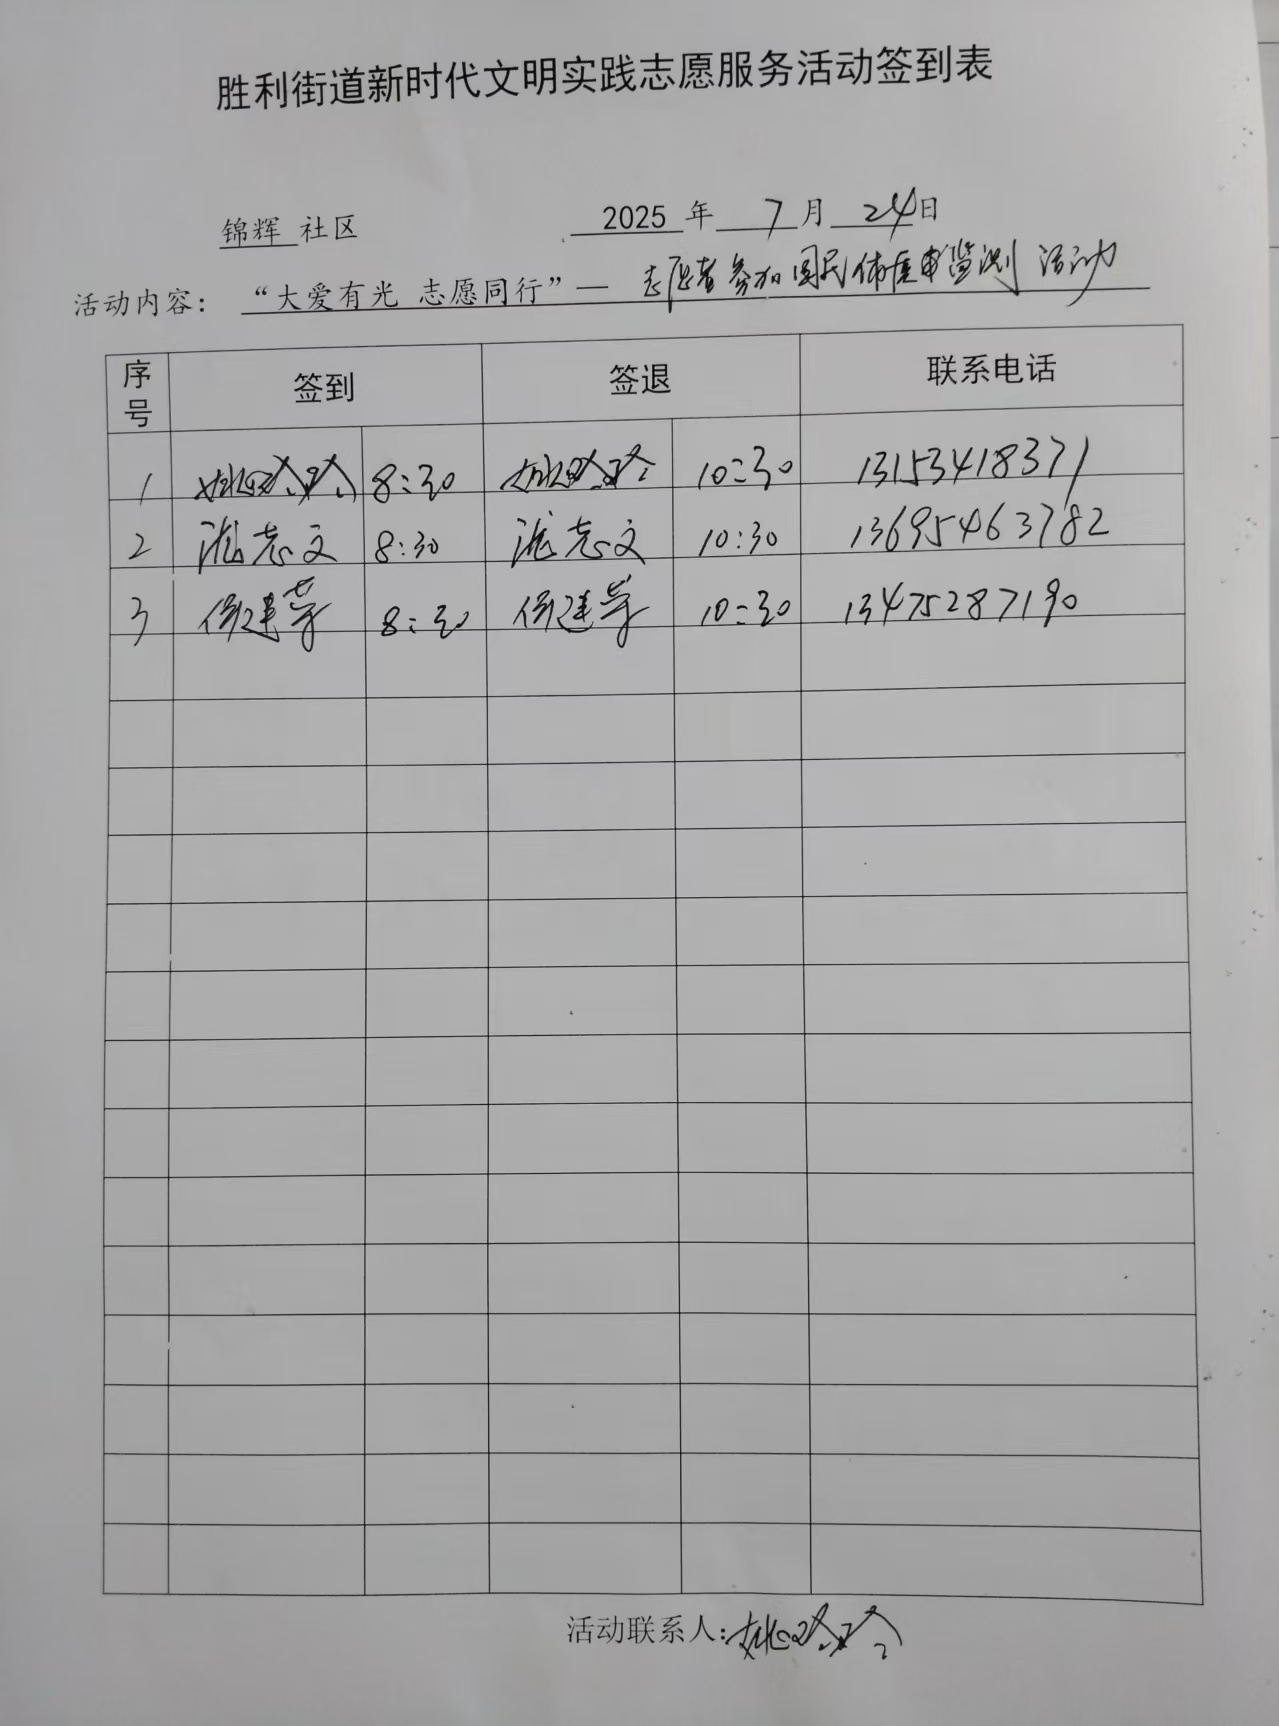 胜利街道新时代文明实践志愿服务活动签到表
锦辉 社区 2025 年 7 月 24 日
活动内容： “大爱有光 志愿同行”— 志愿者参加国民体质监测活动
序号 签到 签退 联系电话
1 姚玲玲 8:30 姚玲玲 10:30 13153418371
2 志文 8:30 志文 10:30 13695463782
3 建芳 8:30 建芳 10:30 13475287190
活动联系人：姚玲玲